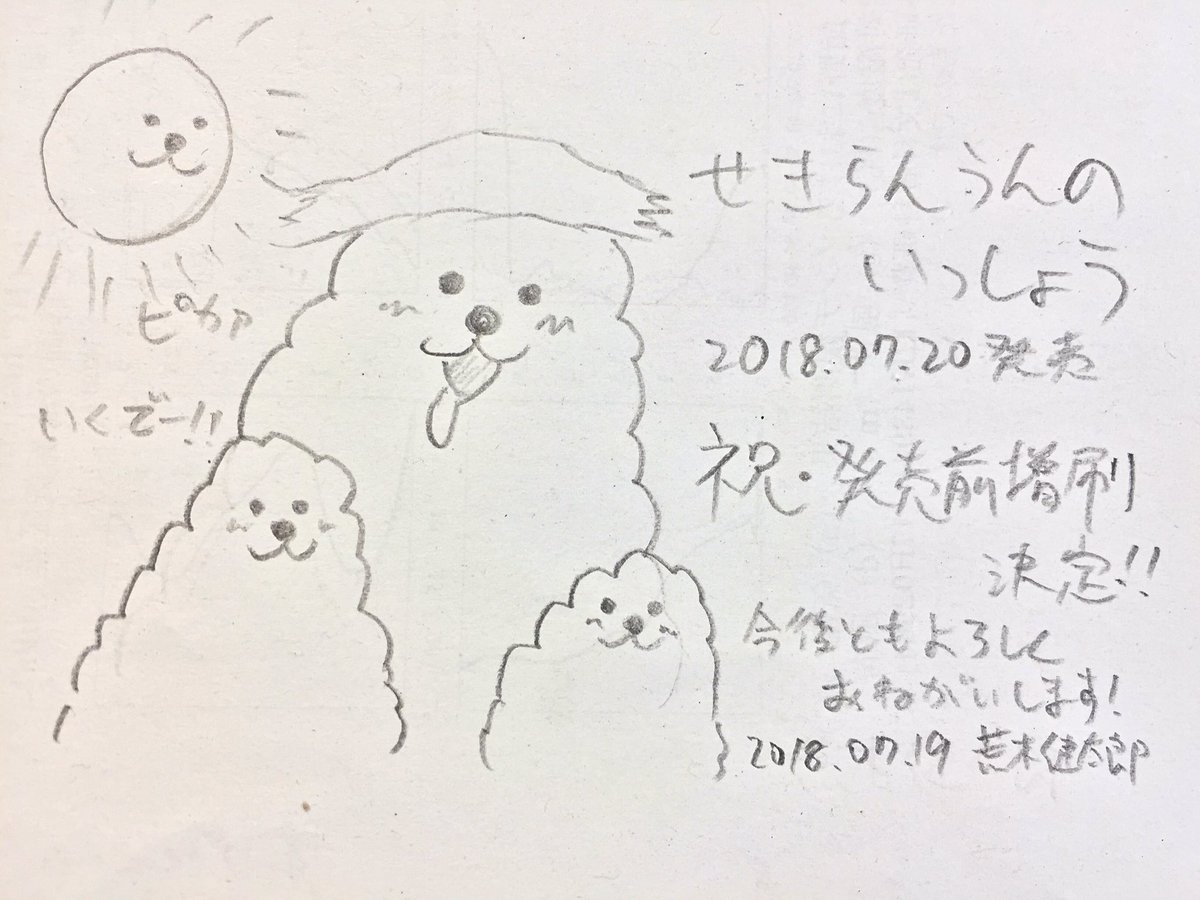 ピカァ
いくでー!!
せきらんうんの
いっしょう
2018.07.20 発売
祝・発売前増刷
決定!!
今後ともよろしく
おねがいします!
2018.07.19 荒木健太郎